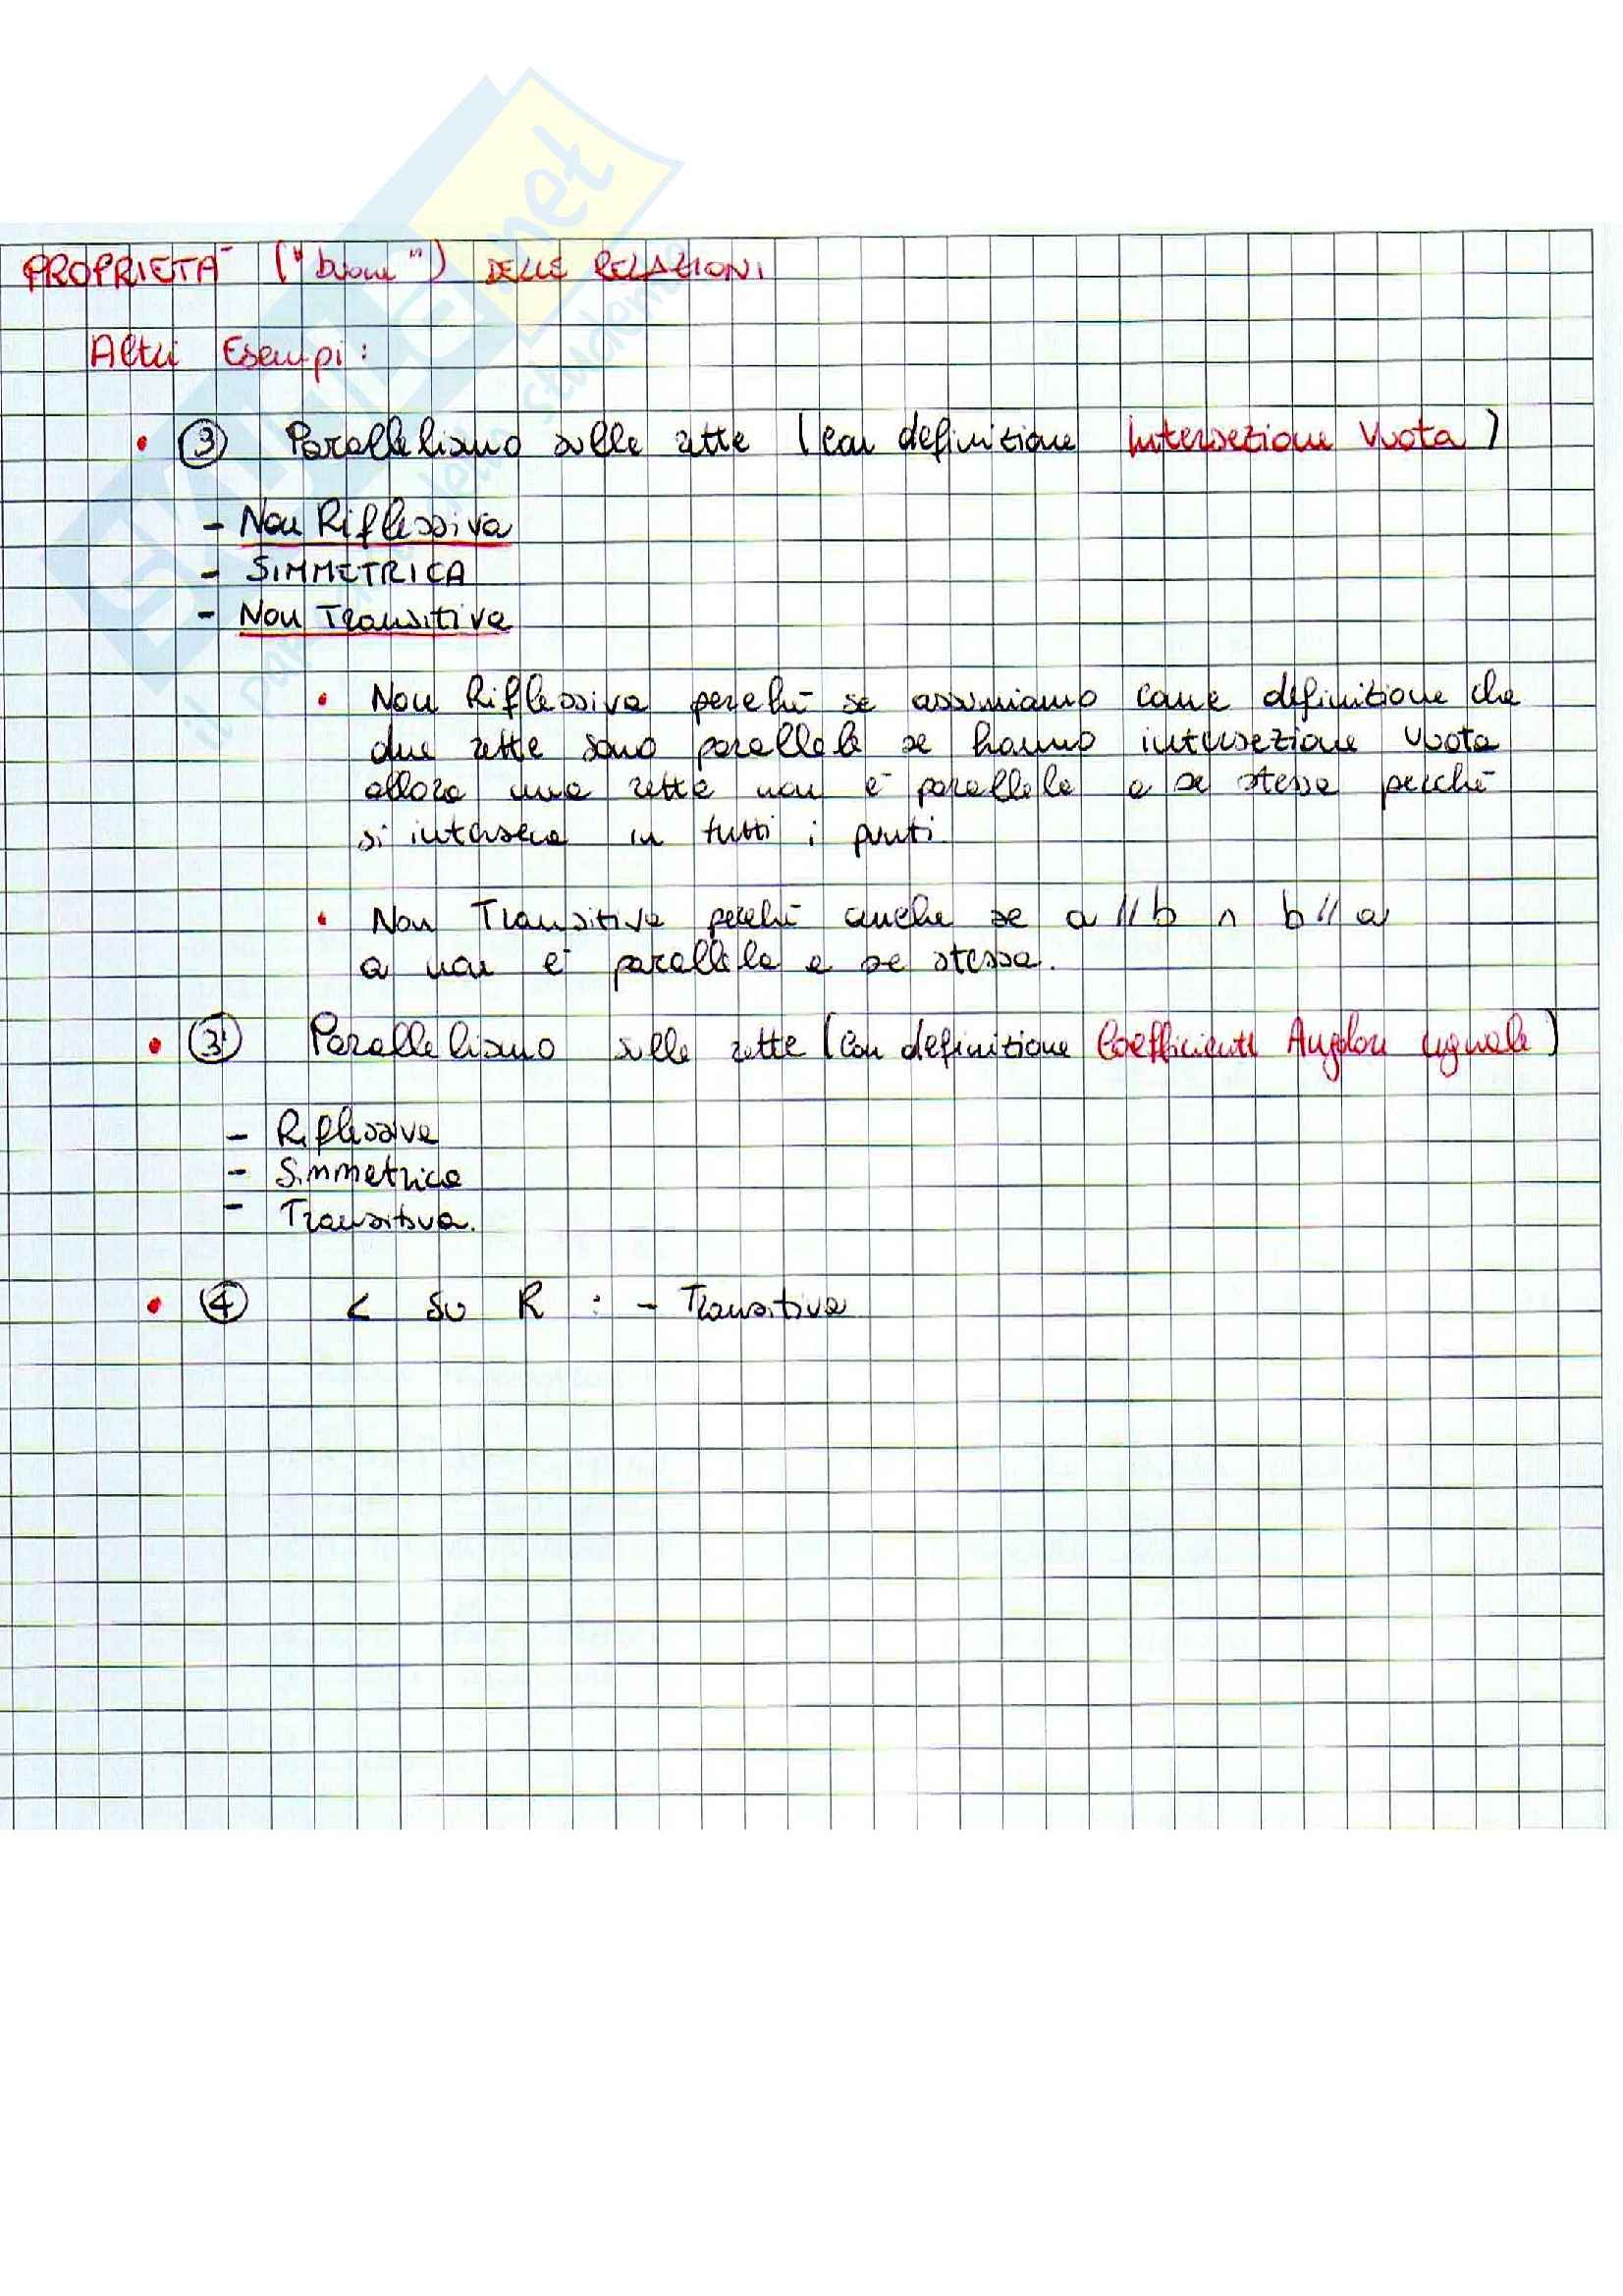 PROPRIETÀ ("buone") DELLE RELAZIONI
Altri Esempi:
• ③ Parallelismo sulle rette (con definizione Intersezione Vuota)
- Non Riflessiva
- SIMMETRICA
- Non Transitiva
• Non Riflessiva perché se assumiamo come definizione che
due rette sono parallele se hanno intersezione vuota
allora una retta non è parallela a se stessa perché
si interseca in tutti i punti.
• Non Transitiva perché anche se a // b ∧ b // a
a non è parallela a se stessa.
• ③' Parallelismo sulle rette (con definizione Coefficienti Angolari uguale)
- Riflessiva
- Simmetrica
- Transitiva.
• ④ < su R : - Transitiva
SKUOLA.net
il paradiso dello studente